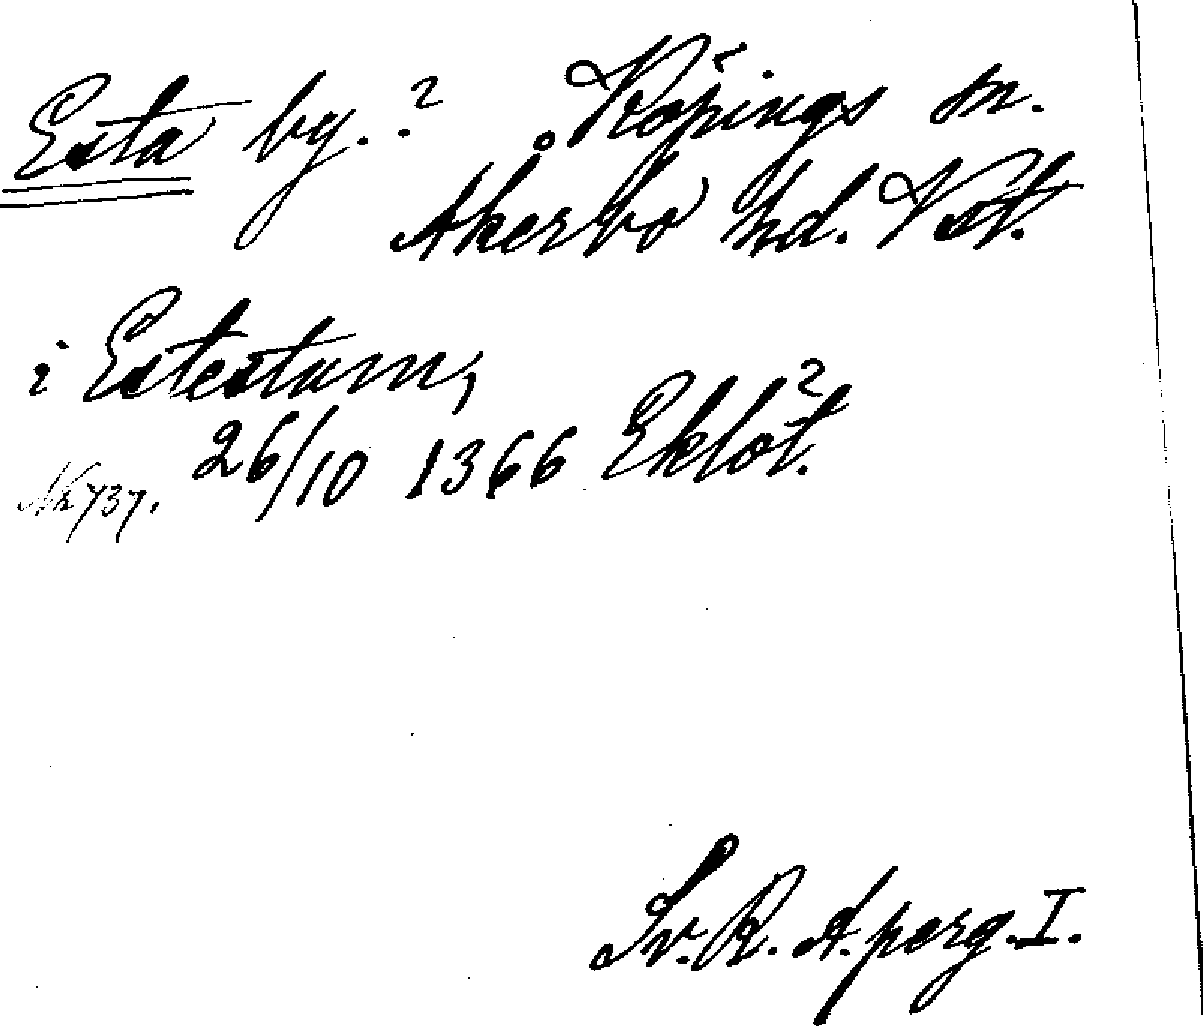 Esta by.? Köpings sn.
Åkerbo hd. Vstl.
i Estestum,
26/10 1366 Eklöt?.
Nr 737.
Sv. R. A. perg. I.